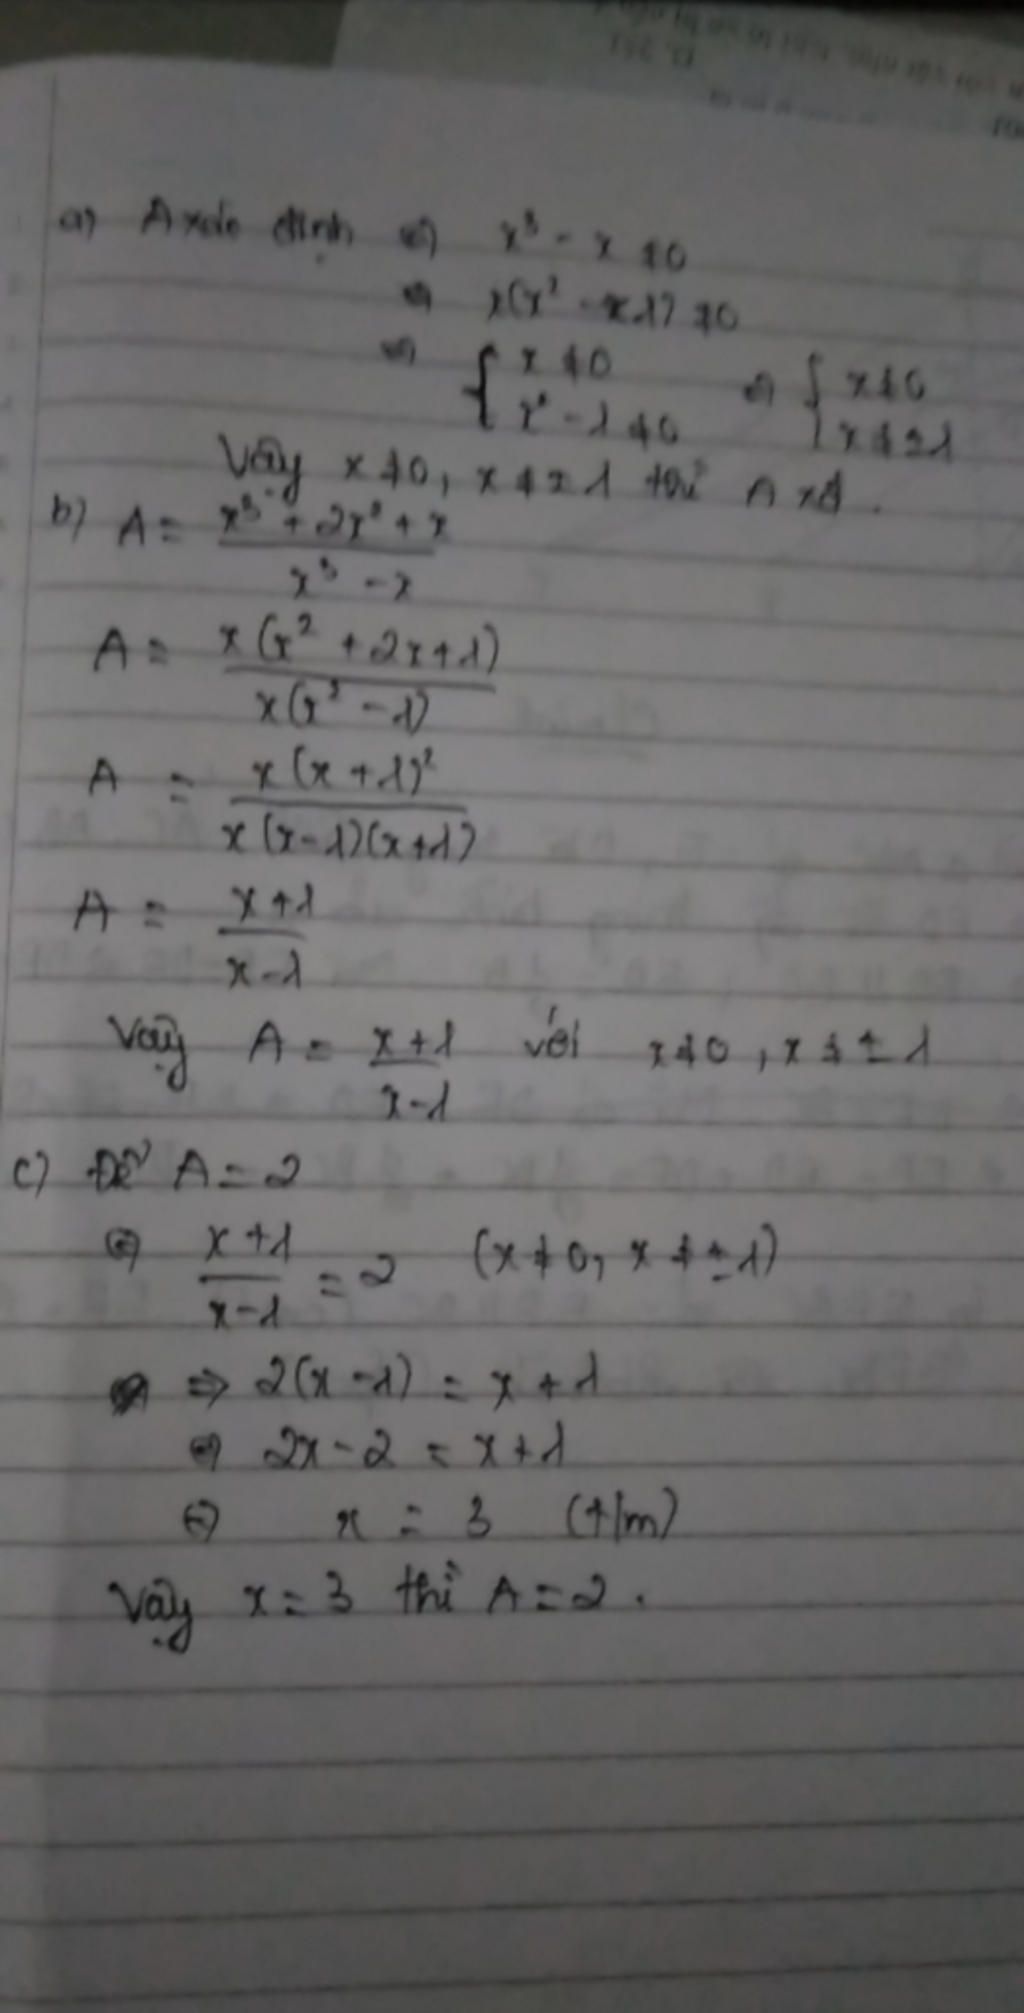 a) A xác định <=> x³ - x ≠ 0
<=> x(x² - 1) ≠ 0
<=> { x ≠ 0 <=> { x ≠ 0
x² - 1 ≠ 0 x ≠ ±1
Vậy x ≠ 0, x ≠ ±1 thì A xđ.
b) A = x³ + 2x² + x
x³ - x
A = x(x² + 2x + 1)
x(x² - 1)
A = x(x + 1)²
x(x - 1)(x + 1)
A = x + 1
x - 1
Vậy A = x + 1 với x ≠ 0, x ≠ ± 1
x - 1
c) Để A = 2
<=> x + 1 = 2 (x ≠ 0, x ≠ ± 1)
x - 1
=> 2(x - 1) = x + 1
<=> 2x - 2 = x + 1
<=> x = 3 (t/m)
Vậy x = 3 thì A = 2.